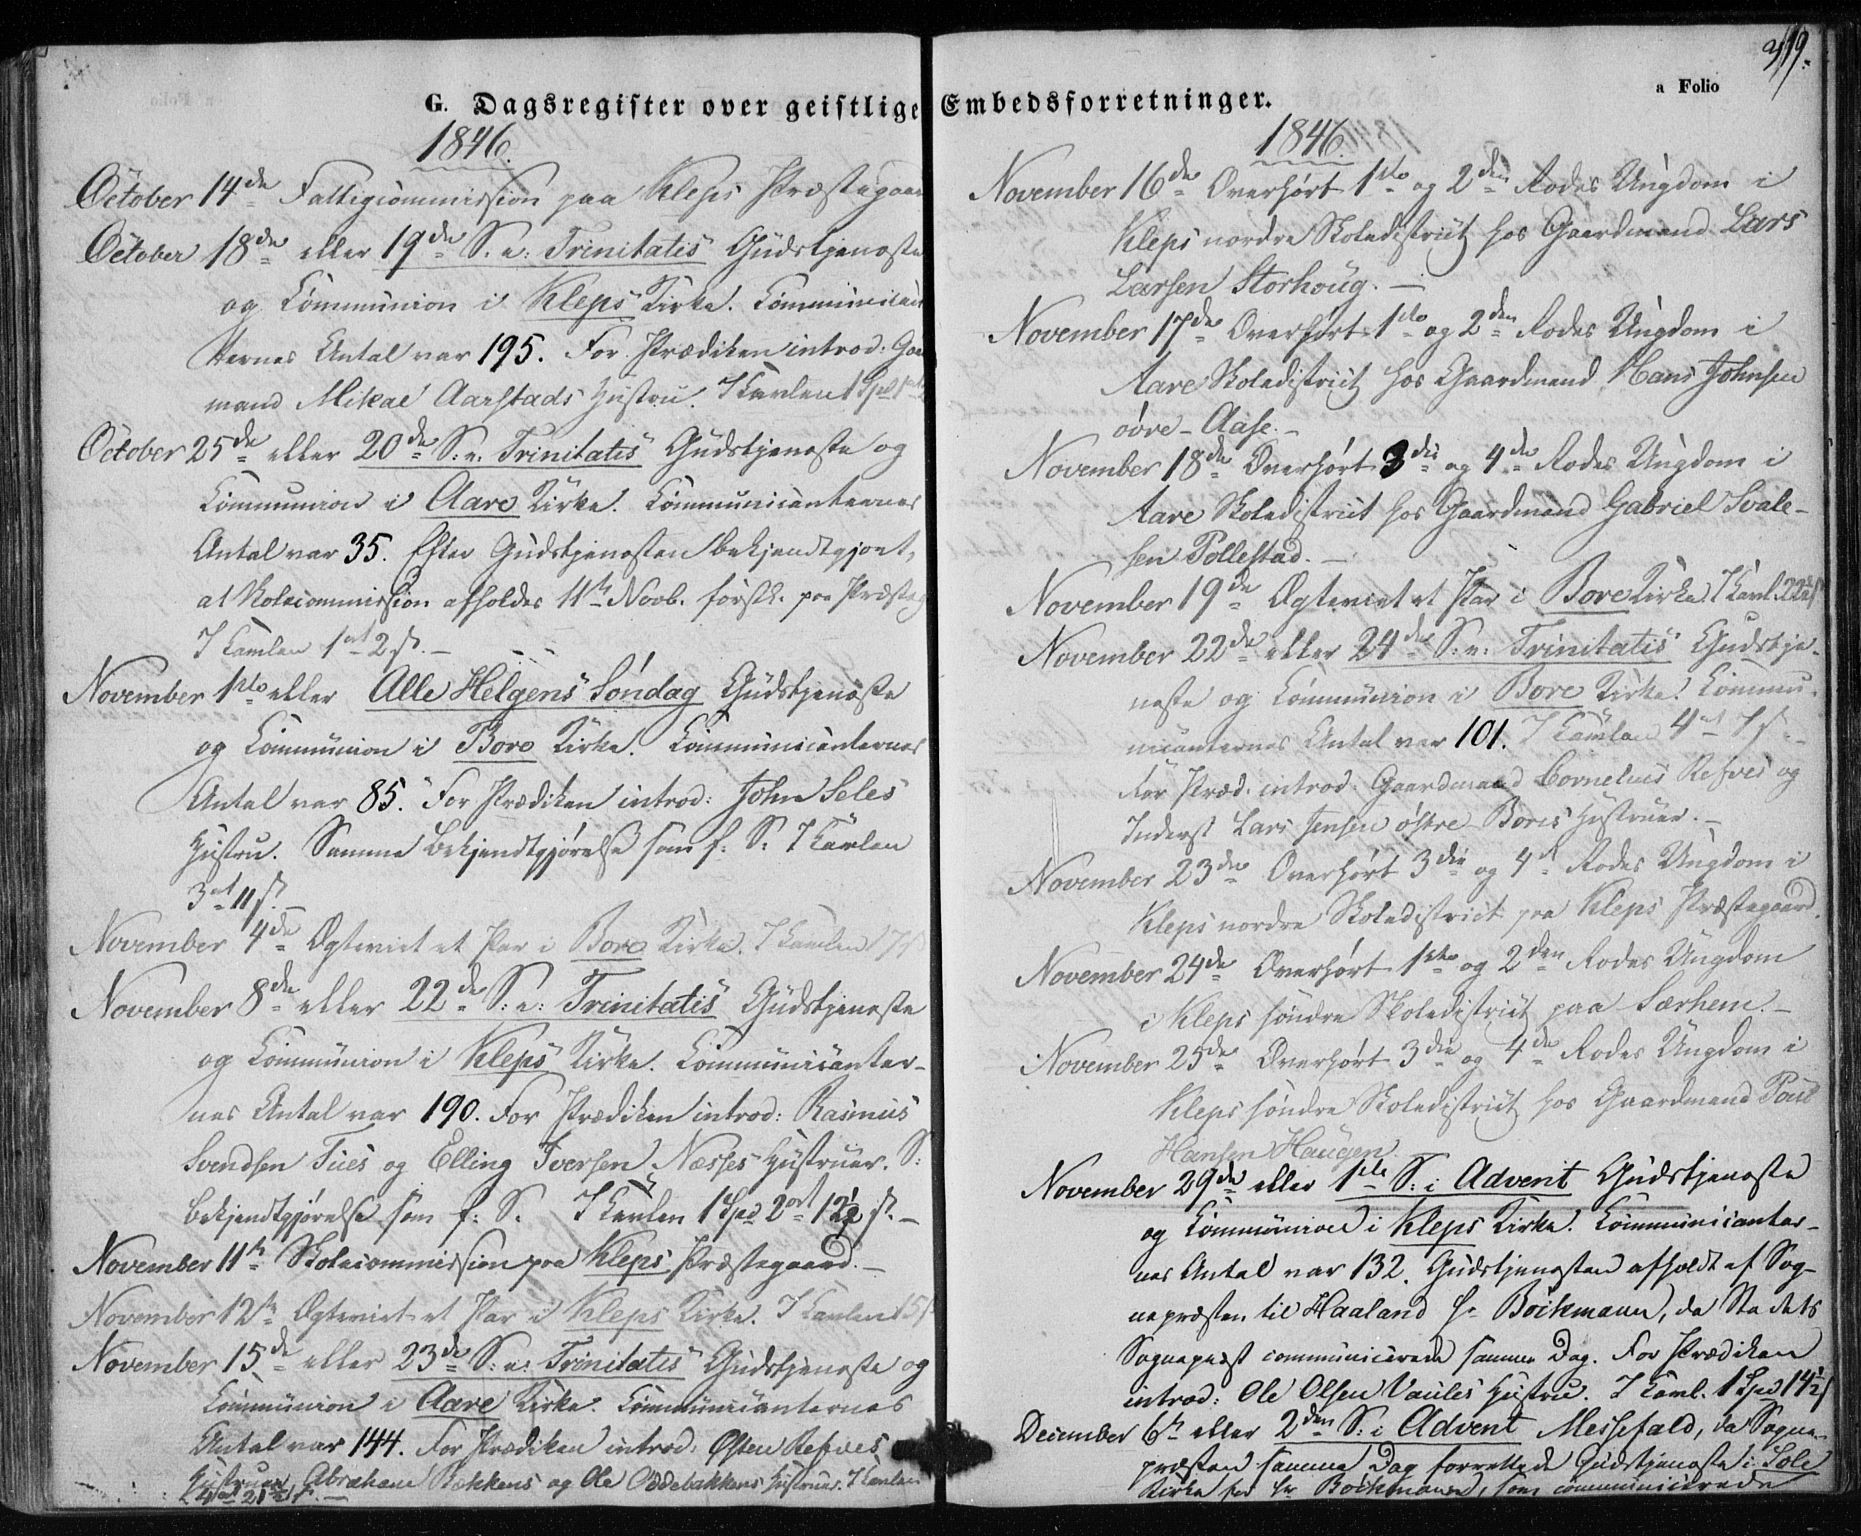 319.
a Folio
G. Dagsregister over geistlige Embedsforretninger.
1846.
October 14de Fattigcommission paa Kleps Præstegaar
October 18de eller 19de S. e: Trinitatis Gudstjeneste
og Communion i Kleps Kirke. Communican
ternes Antal var 195. For Prædiken introd: Gaa
mand Mikae Aarstads Hustru. I Tavlen 1 Spd
October 25de eller 20de S. e. Trinitatis Gudstjeneste og
Communion i Aare Kirke. Communicanternes
Antal var 35. Efter Gudstjenesten bekjendtgjort,
at Skolecommission afholdes 11te Novb. førstk. paa Præsteg
I Tavlen 1 ort 2 s. –
November 1ste eller Alle Helgens Søndag Gudstjeneste
og Communion i Bore Kirke. Communicanternes
Antal var 85. For Prædiken introd: John Seles
Hustru. Samme Bekjendtgjørelse som f: S. I Tavlen
3 ort 11 s. –
November 4de Ægteviet et Par i Bore Kirke. I Tavlen 17 s
November 8de eller 22de S: e: Trinitatis Gudstjeneste
og Communion i Kleps Kirke. Communicanter-
nes Antal var 190. For Prædiken introd: Rasmus
Svendsen Tues og Elling Iversen Næsses Hustruer. S:
bekjendtgjørelse som f: S. I Tavlen 1 Spd 2 ort 12½ s. –
November 11te Skolecommission paa Kleps Præstegaard. –
November 12te Ægteviet et Par i Kleps Kirke. I Tavlen 15 s
November 15de eller 23de S: e: Trinitatis Gudstjeneste og
Communion i Aare Kirke. Communicanternes
Antal var 144. For Prædiken introd: Østen Refves
Hustruer, Abraham Bækkens og Ole Oddebakkens Hustruer. I Tavlen
21½ s. –
1846.
November 16de Overhørt 1ste og 2den Rodes Ungdom i
Kleps nordre Skoledistrict hos Gaardmand Lars
Larsen Storhoug. –
November 17de Overhørt 1ste og 2den Rodes Ungdom i
Aare Skoledistrict hos Gaardmand Hans Johnsen
øvre-Aase. –
November 18de Overhørt 3die og 4de Rodes Ungdom i
Aare Skoledistrict hos Gaardmand Gabriel Svale-
sen Pollestad. –
November 19de Ægteviet et Par i Bore Kirke. I Tavl. 22½ s
November 22de eller 24de S: e: Trinitatis Gudstje-
neste og Communion i Bore Kirke. Commu-
nicanternes Antal var 101. I Tavlen 4 ort 7 s. –
For Præd. introd. Gaardmand Cornelius Refves og
Inderst Lars Jensen østre-Bores Hustruer. –
November 23de Overhørt 3die og 4de Rodes Ungdom i
Kleps nordre Skoledistrict paa Kleps Præstegaard.
November 24de Overhørt 1ste og 2den Rodes Ungdom
i Kleps søndre Skoledistrict paa Særhem. –
November 25de Overhørt 3die og 4de Rodes Ungdom i
Kleps søndre Skoledistrict hos Gaardmand Poul
Hansen Haugen.
November 29de eller 1ste S: i Advent Gudstjeneste
og Communion i Kleps Kirke. Communicanter-
nes Antal var 132. Gudstjenesten afholdt af Sog-
nepræsten til Haaland Hr Bøckmann, da Stedets
Sognepræst communicerede samme Dag. For Prædiken
introd: Ole Olsen Vaules Hustru. I Tavl. 1 Spd 14½ s
December 6te eller 2den S: i Advent Messefald, da Sogne-
præsten samme Dag forrettede Gudstjeneste i Sole
Kirke for Hr Bøckmann, som communicerede